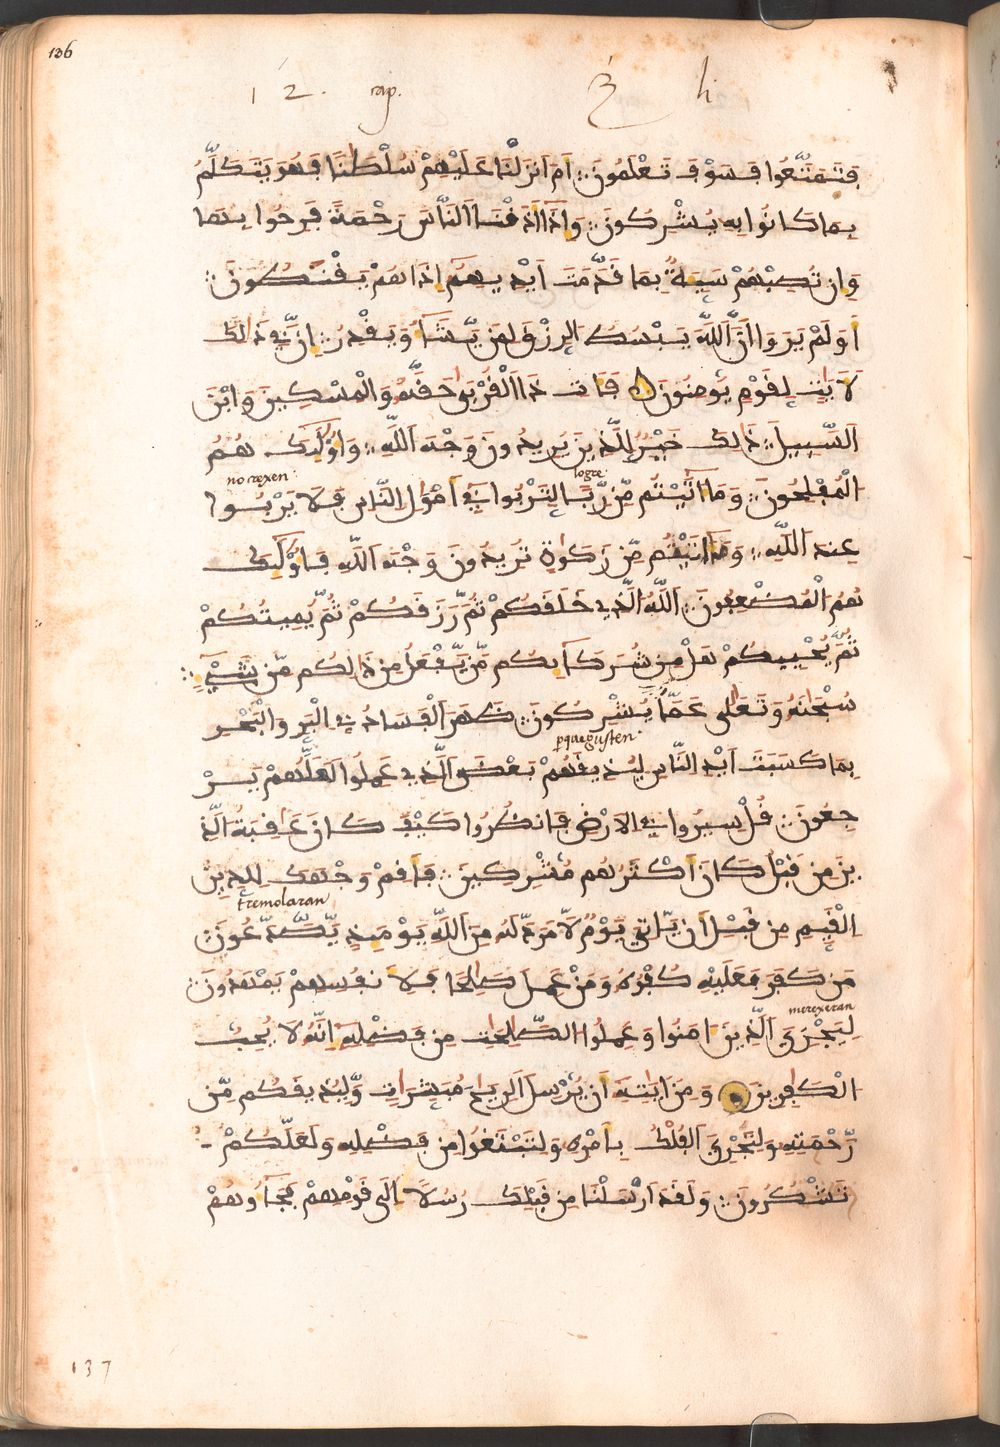 136
12. cap. h
فَتَمَتَّعُوا فَسَوْفَ تَعْلَمُونَ ۞ اَمَ اَنزَلْنَا عَلَيْهِمْ سُلْطَٰنًا فَهُوَ يَتَكَلَّمُ
بِمَا كَانُوا بِهِ يُشْرِكُونَ ۞ وَإِذَا أَذَقْنَا اَلنَّاسَ رَحْمَةً فَرِحُوا بِهَا
وَإِن تُصِبْهُمْ سَيِّئَةٌ بِمَا قَدَّمَتَ اَيْدِيهِمْ إِذَا هُمْ يَقْنَطُونَ ۞
أَوَلَمْ يَرَوَا اَنَّ اَللَّهَ يَبْسُطُ اُلرِزْقَ لِمَن يَّشَآءُ وَيَقْدِرُ ۞ إِنَّ فِي ذَٰلِكَ
لَأَيَٰتٍ لِقَوْمٍ يُومِنُونَ فَـَٔاتِ ذَا اَلْقُرْبَىٰ حَقَّهُ وَالْمِسْكِينَ وَابْنَ
اَلسَّبِيلِ ۞ ذَٰلِكَ خَيْرٌ لِلَّذِينَ يُرِيدُونَ وَجْهَ اَللَّهِ ۞ وَأُوْلَٰئِكَ هُمُ
no crexen logre
اُلْمُفْلِحُونَ ۞ وَمَا اَتَيْتُم مِّن رِّبًا لِتُرْبُوا فِي اَمْوَٰلِ اِلنَّاسِ فَلَا يَرْبُوا
عِندَ اَللَّهِ ۞ وَمَا اَتَيْتُم مِّن زَكَوٰةٍ تُرِيدُونَ وَجْهَ اَللَّهِ فَأُوْلَٰئِكَ
هُمُ اُلْمُضْعِفُونَ ۞ اَللَّهُ اُلَّذِي خَلَقَكُمْ ثُمَّ رَزَقَكُمْ ثُمَّ يُمِيتُكُمْ
ثُمَّ يُحْيِيكُمْ هَلْ مِن شُرَكَآئِكُم مَّن يَّفْعَلُ مِن ذَٰلِكُم مِّن شَيْءٍ ۞
سُبْحَٰنَهُ وَتَعَٰلَىٰ عَمَّا يُشْرِكُونَ ۞ ظَهَرَ اَلْفَسَادُ فِي اِلْبَرِّ وَالْبَحْرِ
pa que gusten
بِمَا كَسَبَتَ اَيْدِ اِلنَّاسِ لِيُذِيقَهُمْ بَعْضَ اَلَّذِي عَمِلُوا لَعَلَّهُمْ يَرْ
جِعُونَ ۞ قُلْ سِيرُوا فِي اِلاَرْضِ فَانظُرُوا كَيْفَ كَانَ عَٰقِبَةُ اُلَّذِ
ينَ مِن قَبْلُ كَانَ أَكْثَرُهُم مُّشْرِكِينَ ۞ فَأَقِمْ وَجْهَكَ لِلدِّينِ
tremolaran
اِلْقَيِّمِ مِن قَبْلِ أَن يَّاتِيَ يَوْمٌ لَّا مَرَدَّ لَهُ مِنَ اَللَّهِ يَوْمَئِذٍ يَّصَّدَّعُونَ ۞
مَن كَفَرَ فَعَلَيْهِ كُفْرُهُ وَمَنْ عَمِلَ صَٰلِحًا فَلِأَنفُسِهِمْ يَمْهَدُونَ ۞
merexeran
لِيَجْزِيَ اَلَّذِينَ ءَامَنُوا وَعَمِلُوا اُلصَّٰلِحَٰتِ مِن فَضْلِهِ إِنَّهُ لَا يُحِبُّ
اُلْكَٰفِرِينَ وَمِنَ اَيَٰتِهِ أَن يُّرْسِلَ اَلرِّيَٰحَ مُبَشِّرَٰتٍ وَّلِيُذِيقَكُم مِّن
رَّحْمَتِهِ وَلِتَجْرِيَ اَلْفُلْكُ بِأَمْرِهِ وَلِتَبْتَغُوا مِن فَضْلِهِ وَلَعَلَّكُمْ
تَشْكُرُونَ ۞ وَلَقَدَ اَرْسَلْنَا مِن قَبْلِكَ رُسُلًا اِلَىٰ قَوْمِهِمْ فَجَآءُوهُمْ
137